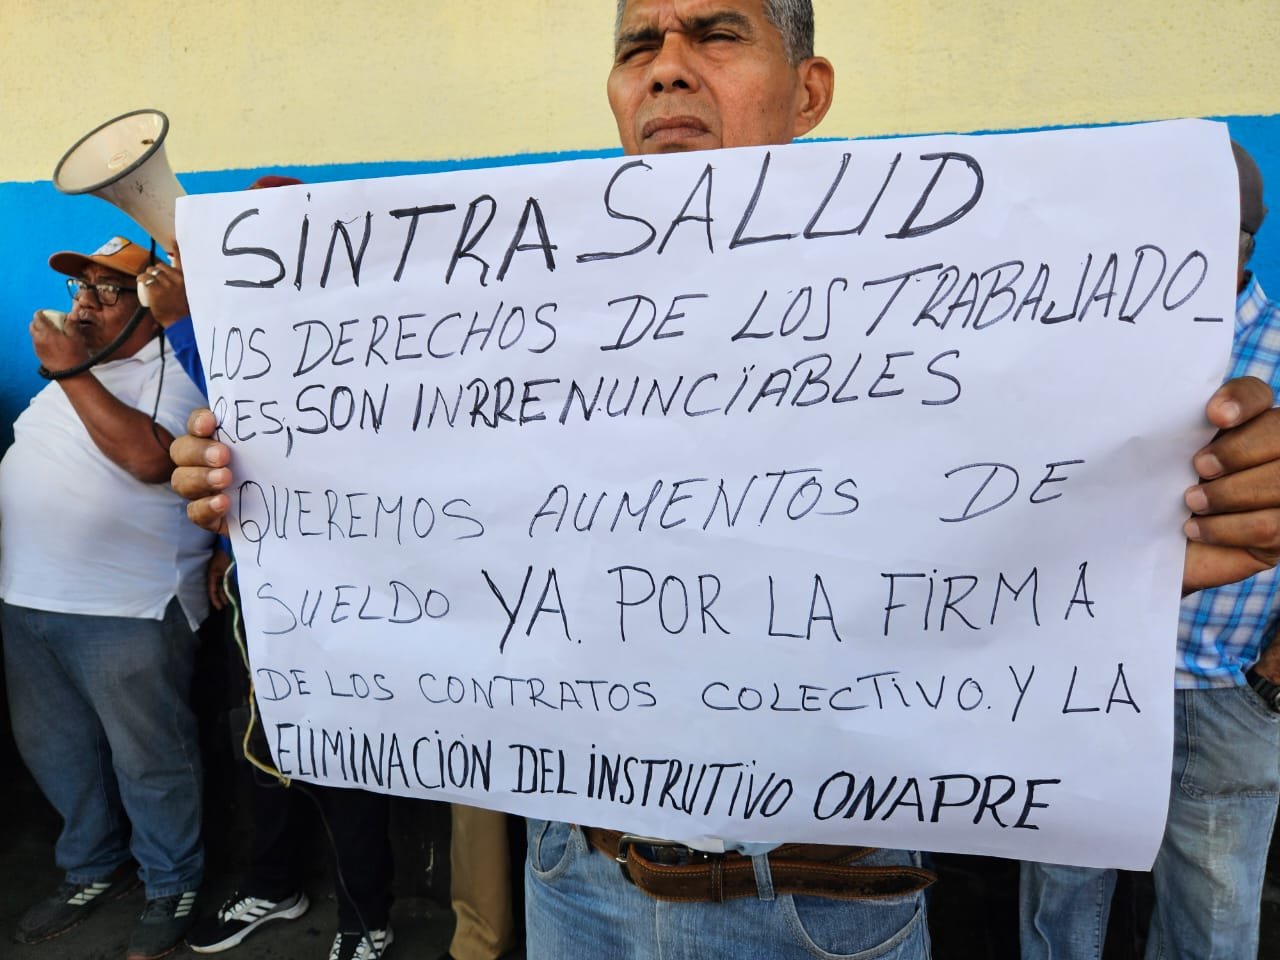 SINTRASALUD
LOS DERECHOS DE LOS TRABAJADO_
RES, SON INRRENUNCIABLES
QUEREMOS AUMENTOS DE
SUELDO YA. POR LA FIRMA
DE LOS CONTRATOS COLECTIVO. Y LA
ELIMINACIÓN DEL INSTRUTIVO ONAPRE